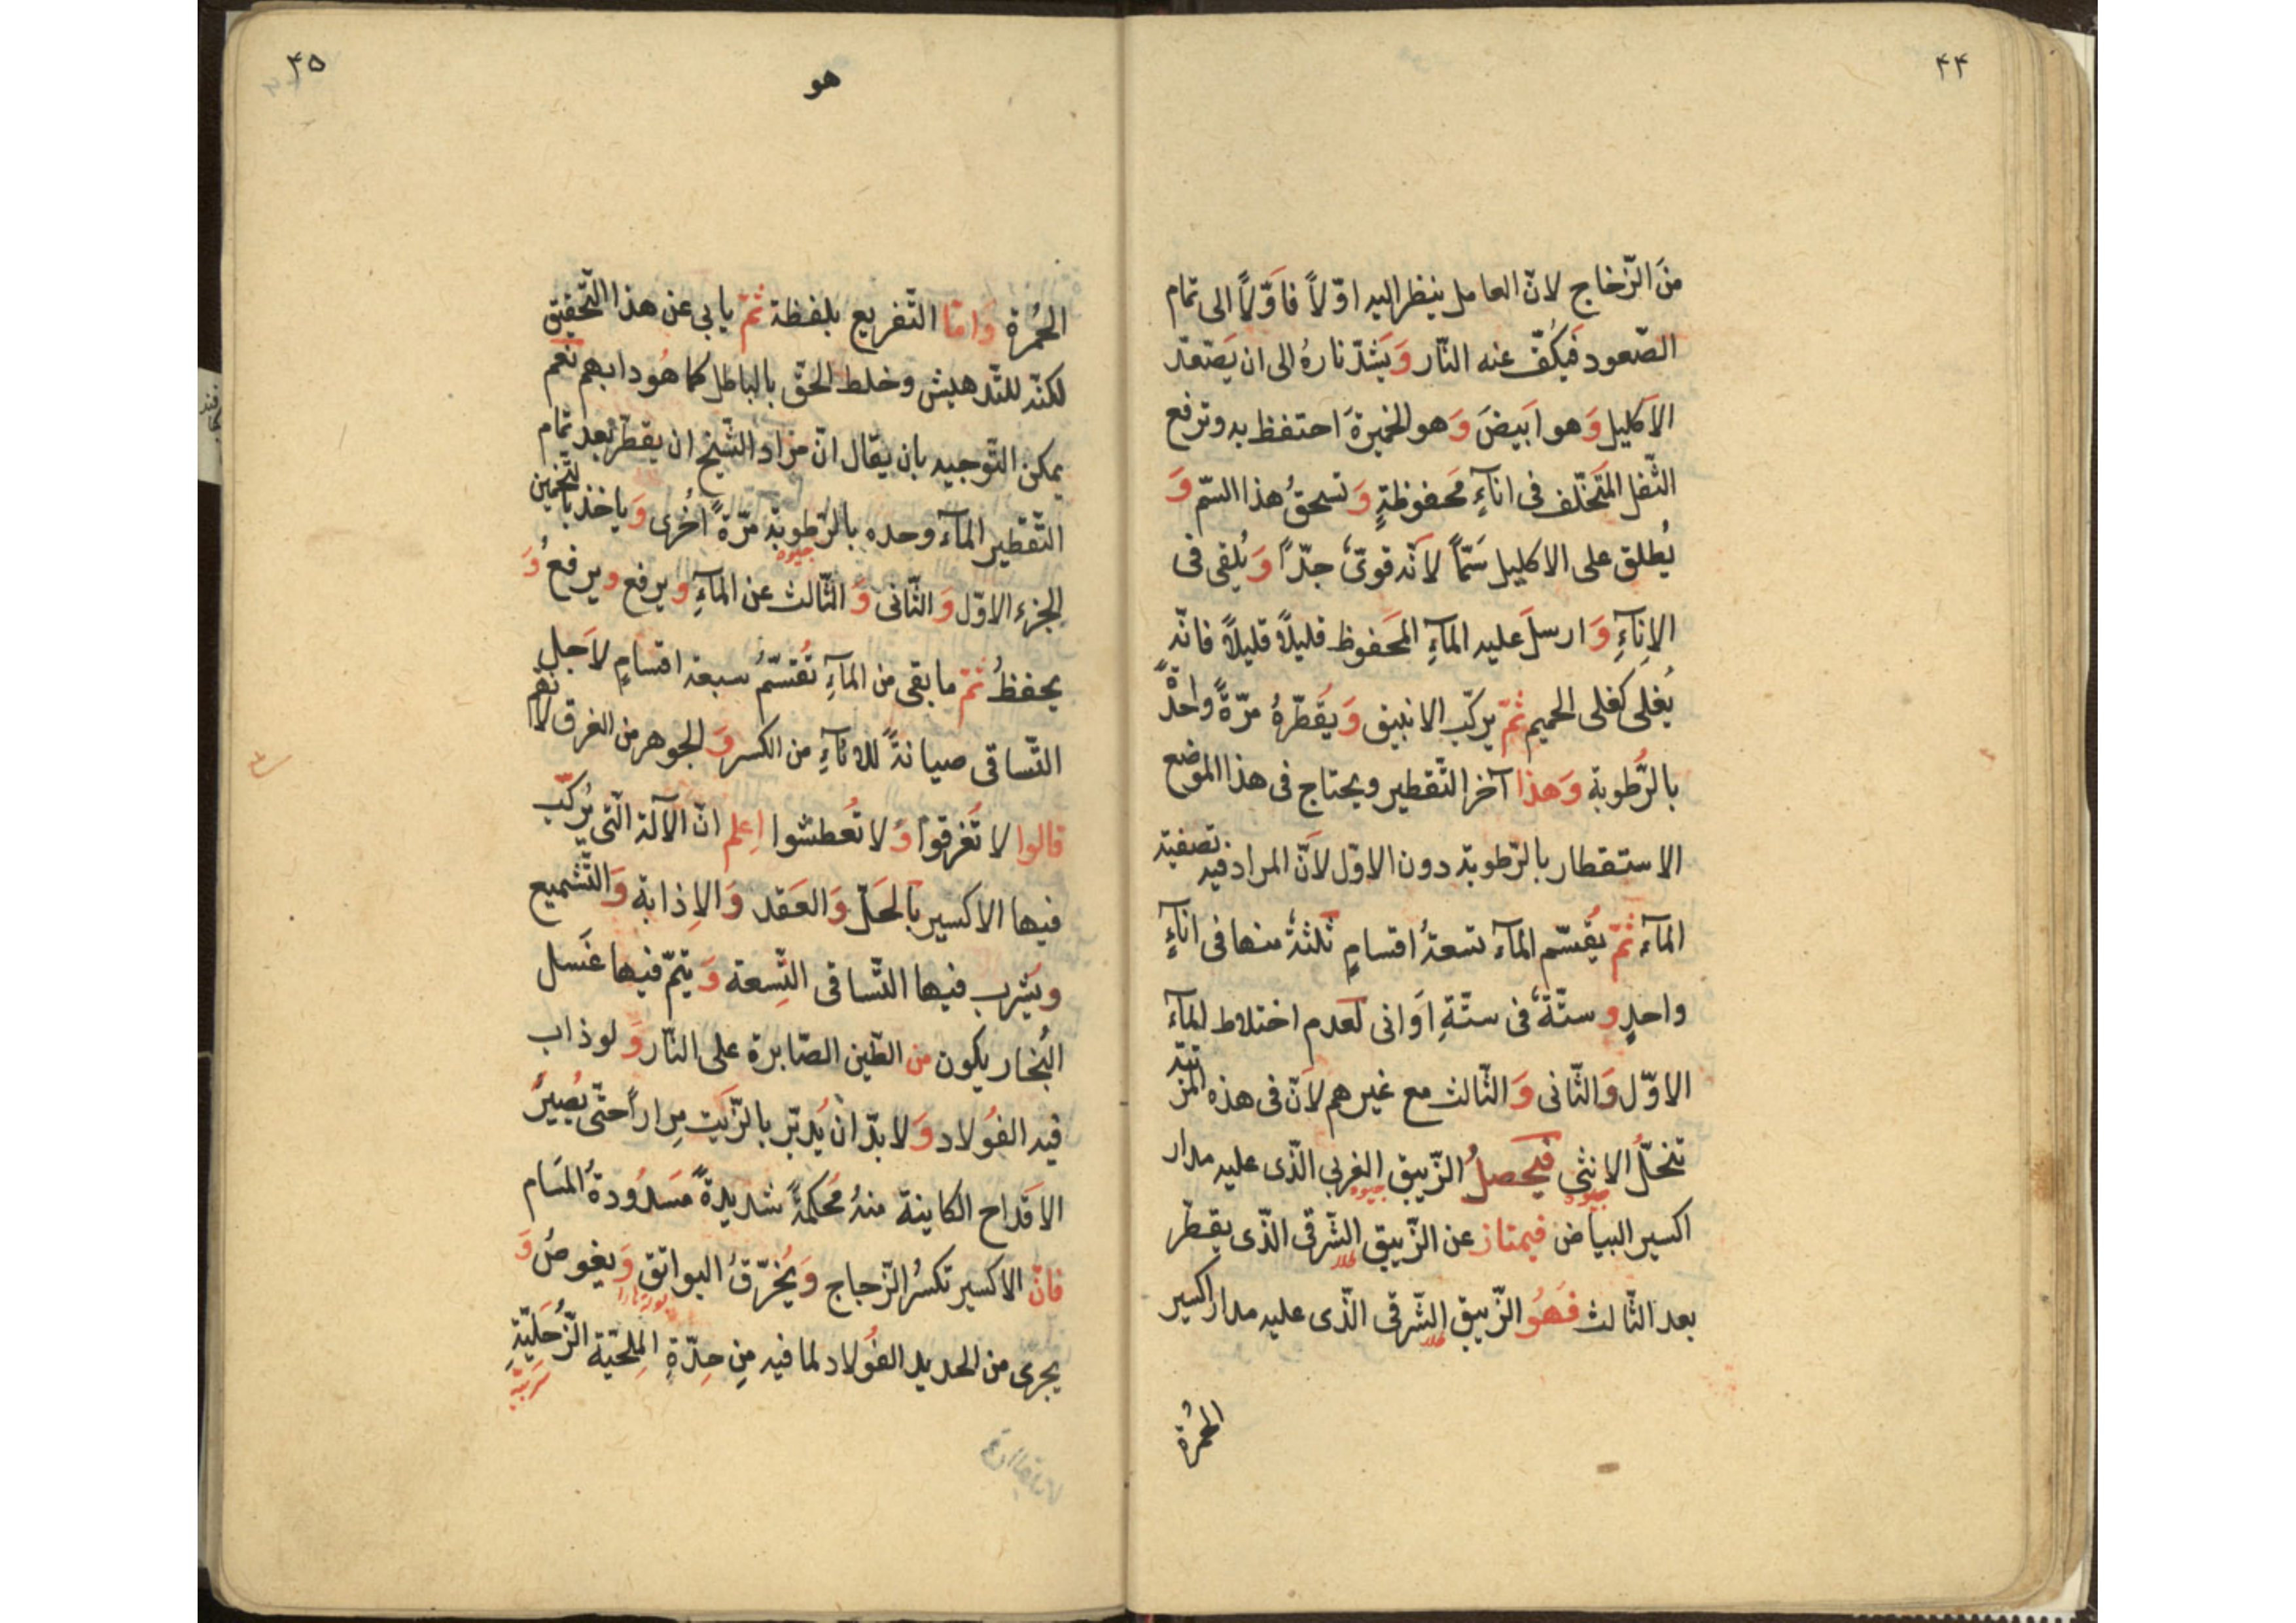 ۴۴
منَ الزّخاج لانّ العامل ينظر اليه اوّلاً فاَوّلاً الى تمام
الصّعود فيَكُفّ عنه النّار وَيَشدّ نارهُ الى ان يَصّعّد
الاكليل وَهو ابَيضَ وَهو الخميرة احتفظ به وترفع
الثّفل المتَخلّف فى انآءٍ مَحفوظةٍ وَتسحقُ هذا السّم وَ
يُطلق على الاكليل سَمّاً لانّه قوىّ جدّاً وَيُلقى فى
الاِنآءِ وَارسلَ عليه المآءِ المَحفوظ قليلاً قليلاً فانّه
يُغلى كغلى الحميم ثمّ يركّب الانبيق وَيقُطّرهُ مرّةً واحدةً
بالرّطوبة وَهذا آخر التّقطير ويحتاج فى هذا الموضع
الاستقطار بالرّطوبة دون الاوّل لانّ المراد فيه تصفية
المآء ثمّ يقُسّم المآء تسعةُ اقسامٍ ثلثةُ منها فى انآءٍ
واحدٍ وستّةُ فى ستّةِ اَوانى لعدم اختلاط المآء
الاوّل وَالثّانى وَالثّالث مع غيرهم لانّ فى هذه المرتبة
تنحّل الانثى فيحصلُ الزّيبق الغربى الّذى عليه مدار
جيوه
جيوه
اكسير البياض فيمتاز عن الزّيبق الشّرقى الّذى يقطّر
طلا
بعد الثّالث فهَوُ الزّيبق الشّرقى الّذى عليه مدار اكسير
طلا
الحُمرة
۴۵
هو
الحُمرة وَامّا التّفريع بلفظة ثمّ يابى عن هذا التّحقيق
لكنّه للتّدهيش وخلط الحقّ بالباطل كما هُو دابهم نعم
يمكن التّوجيه بان يقال انّ مراد الشّيخ ان يقطّر بعد تمام
التّقطير المآء وحده بالرّطوبة مرّةً اُخرى وَياخذ بالتّخمين
جيوه
الجزء الاوّل وَالثّانى وَالثّالث عن المآءِ ويرفع ويرفعُ وَ
يحفظُ ثمّ ما بقى من المآءِ تُقسّمُ سبعة اقسامٍ لاَجلِ
التّساقى صيانةً للانآءِ من الكسر وَالجوهر من الغرق لانّهم
قالوا لا تُغرقوا وَلا تُعطشوا اِعلم انّ الآلة الّتى يُركّب
فيها الاكسير بالحَلّ وَالعَقد وَالاِذابة وَالتّشميع
ويَشرب فيها التّساقى التِّسعة وَيتمّ فيها غَسل
البُخار يكون من الطّين الصّابرة على النّار وَلو ذاب
فيه الفُولاد وَلا بدّ انْ يُدبّر بالزّيَت مِراراً حتّى يُصيرَ
الاَقداح الكاينة منهُ مُحكمةً شديدةً مَسدُودةُ المَسَام
فانّ الاكسير تكسرُ الزّجاج وَيُخرّقُ البواتق وَيغوصُ وَ
يجرى من الحديد الفُولاد لما فيه مِن حِدّةِ المِلحيّة الزُّحَليّةِ
سربيّة